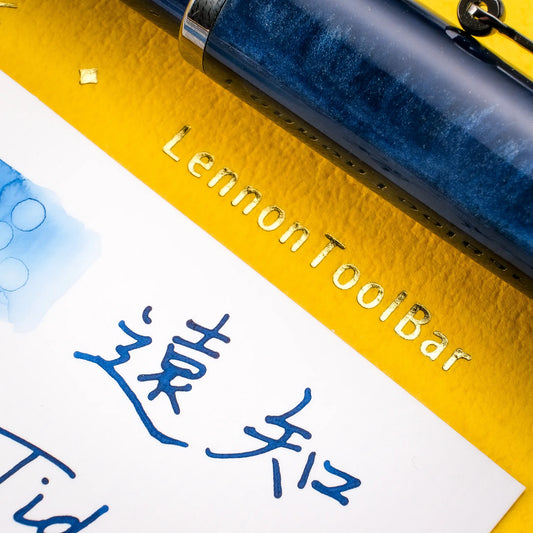 LennonToolBar
遠知
Tid